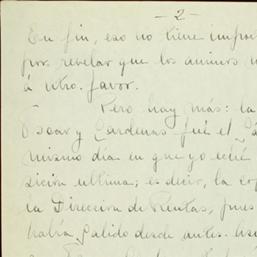 - 2 -
En fin, eso no tiene impor
por revelar que los animos
á otro. favor.
- Pero hay más: la
Oscar y Cardenas fué el
mismo día en que yo eché
sición ultima; es decir, la co
la Direccion de Rentas, pues
habia salido desde antes. Asi